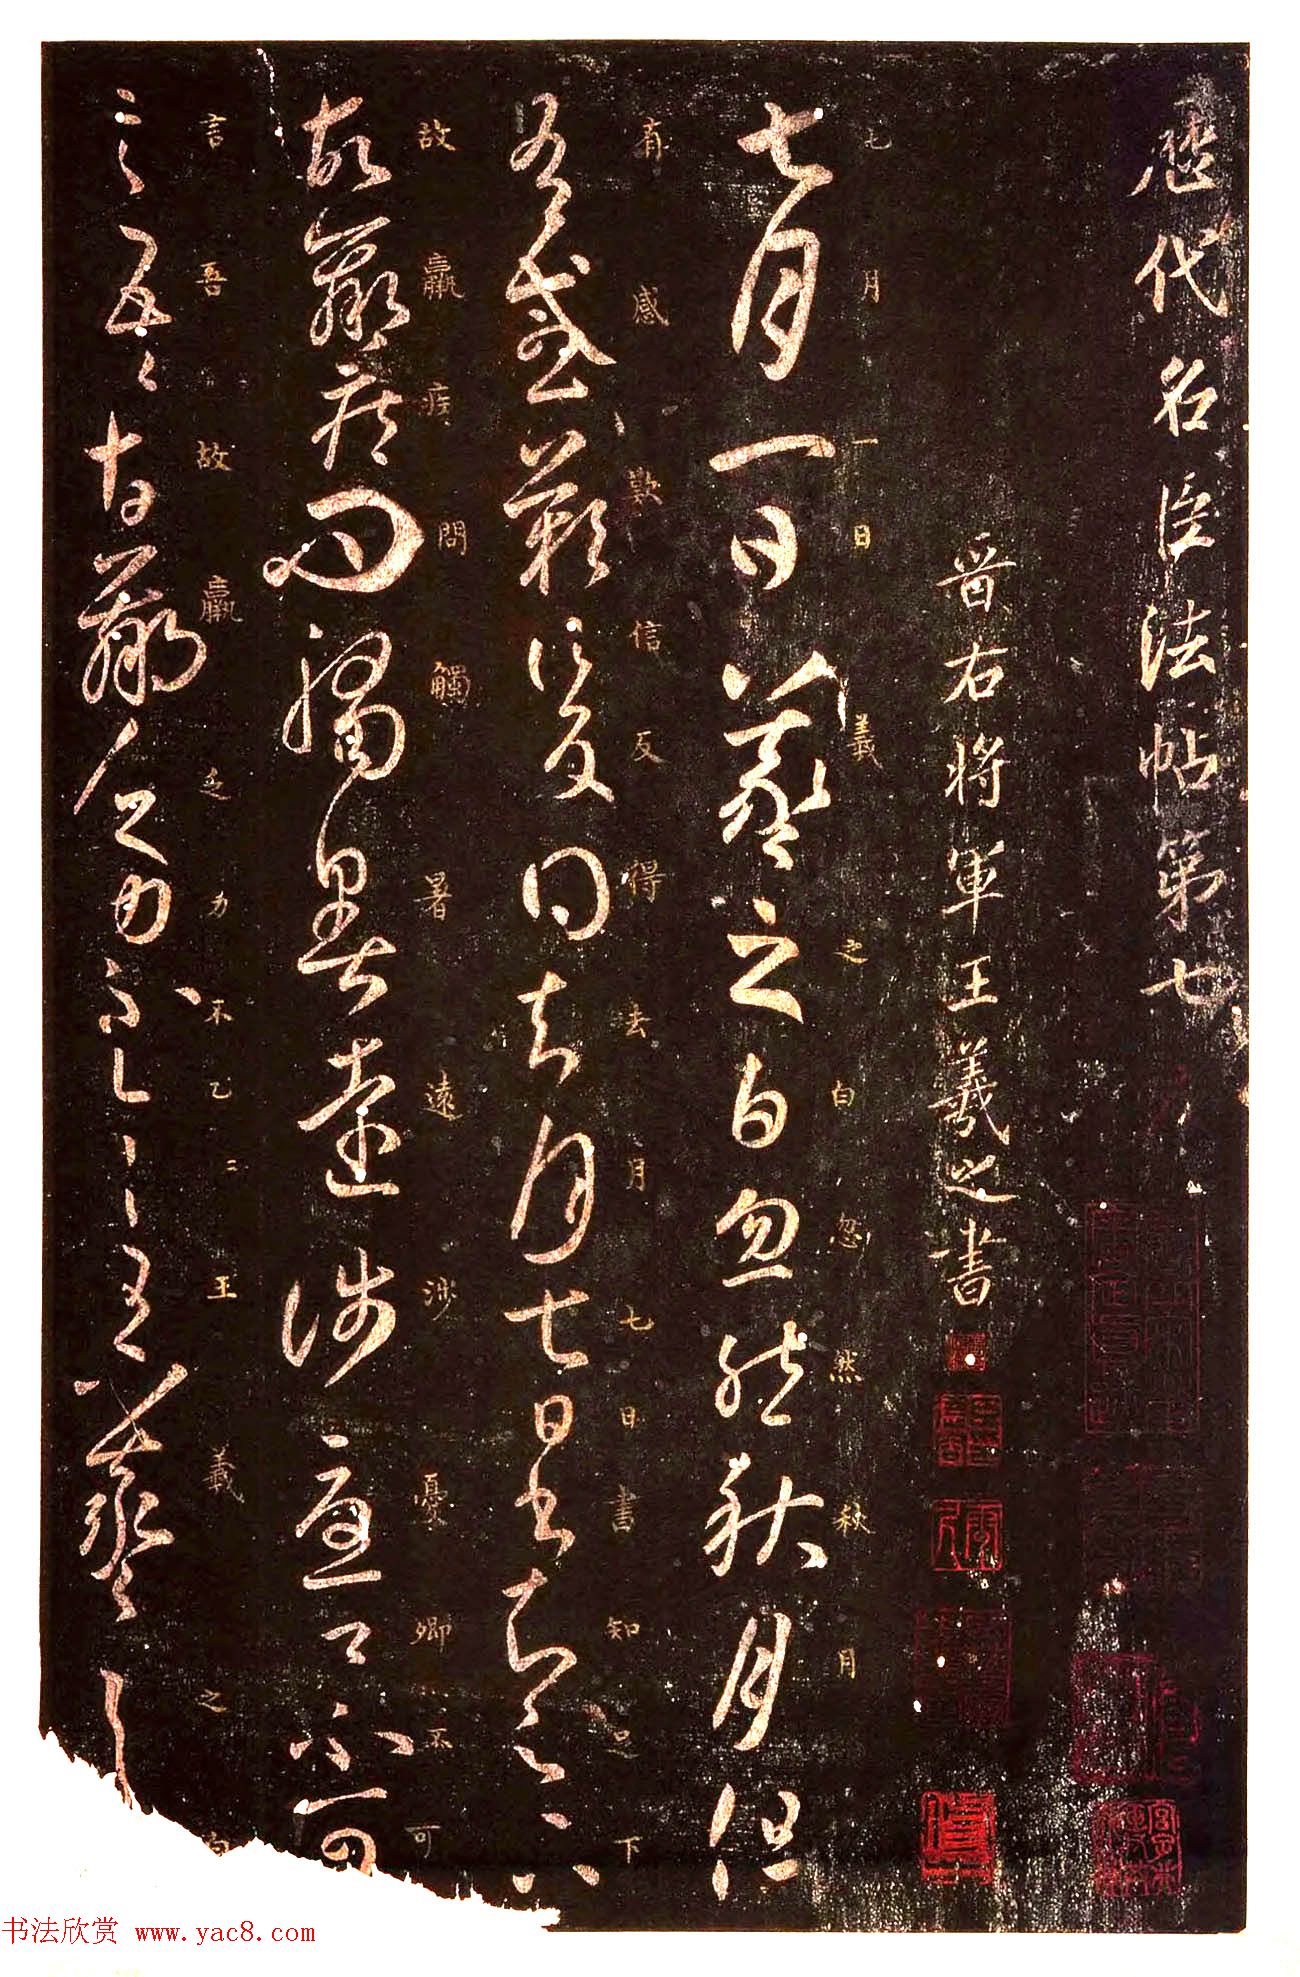 歷代名臣法帖第七
晉右將軍王羲之書
七月一日羲之白忽然秋月
七月一日羲之白忽然秋月但
有感歎信反得去月七日書知足下
有感歎信反得去月七日書知足下
故羸疾問觸暑遠涉憂卿不可
故羸疾問觸暑遠涉憂卿不可
言吾故羸乏力不乙〻王羲之白
言吾故羸乏力不一一王羲之
书法欣赏 www.yac8.com